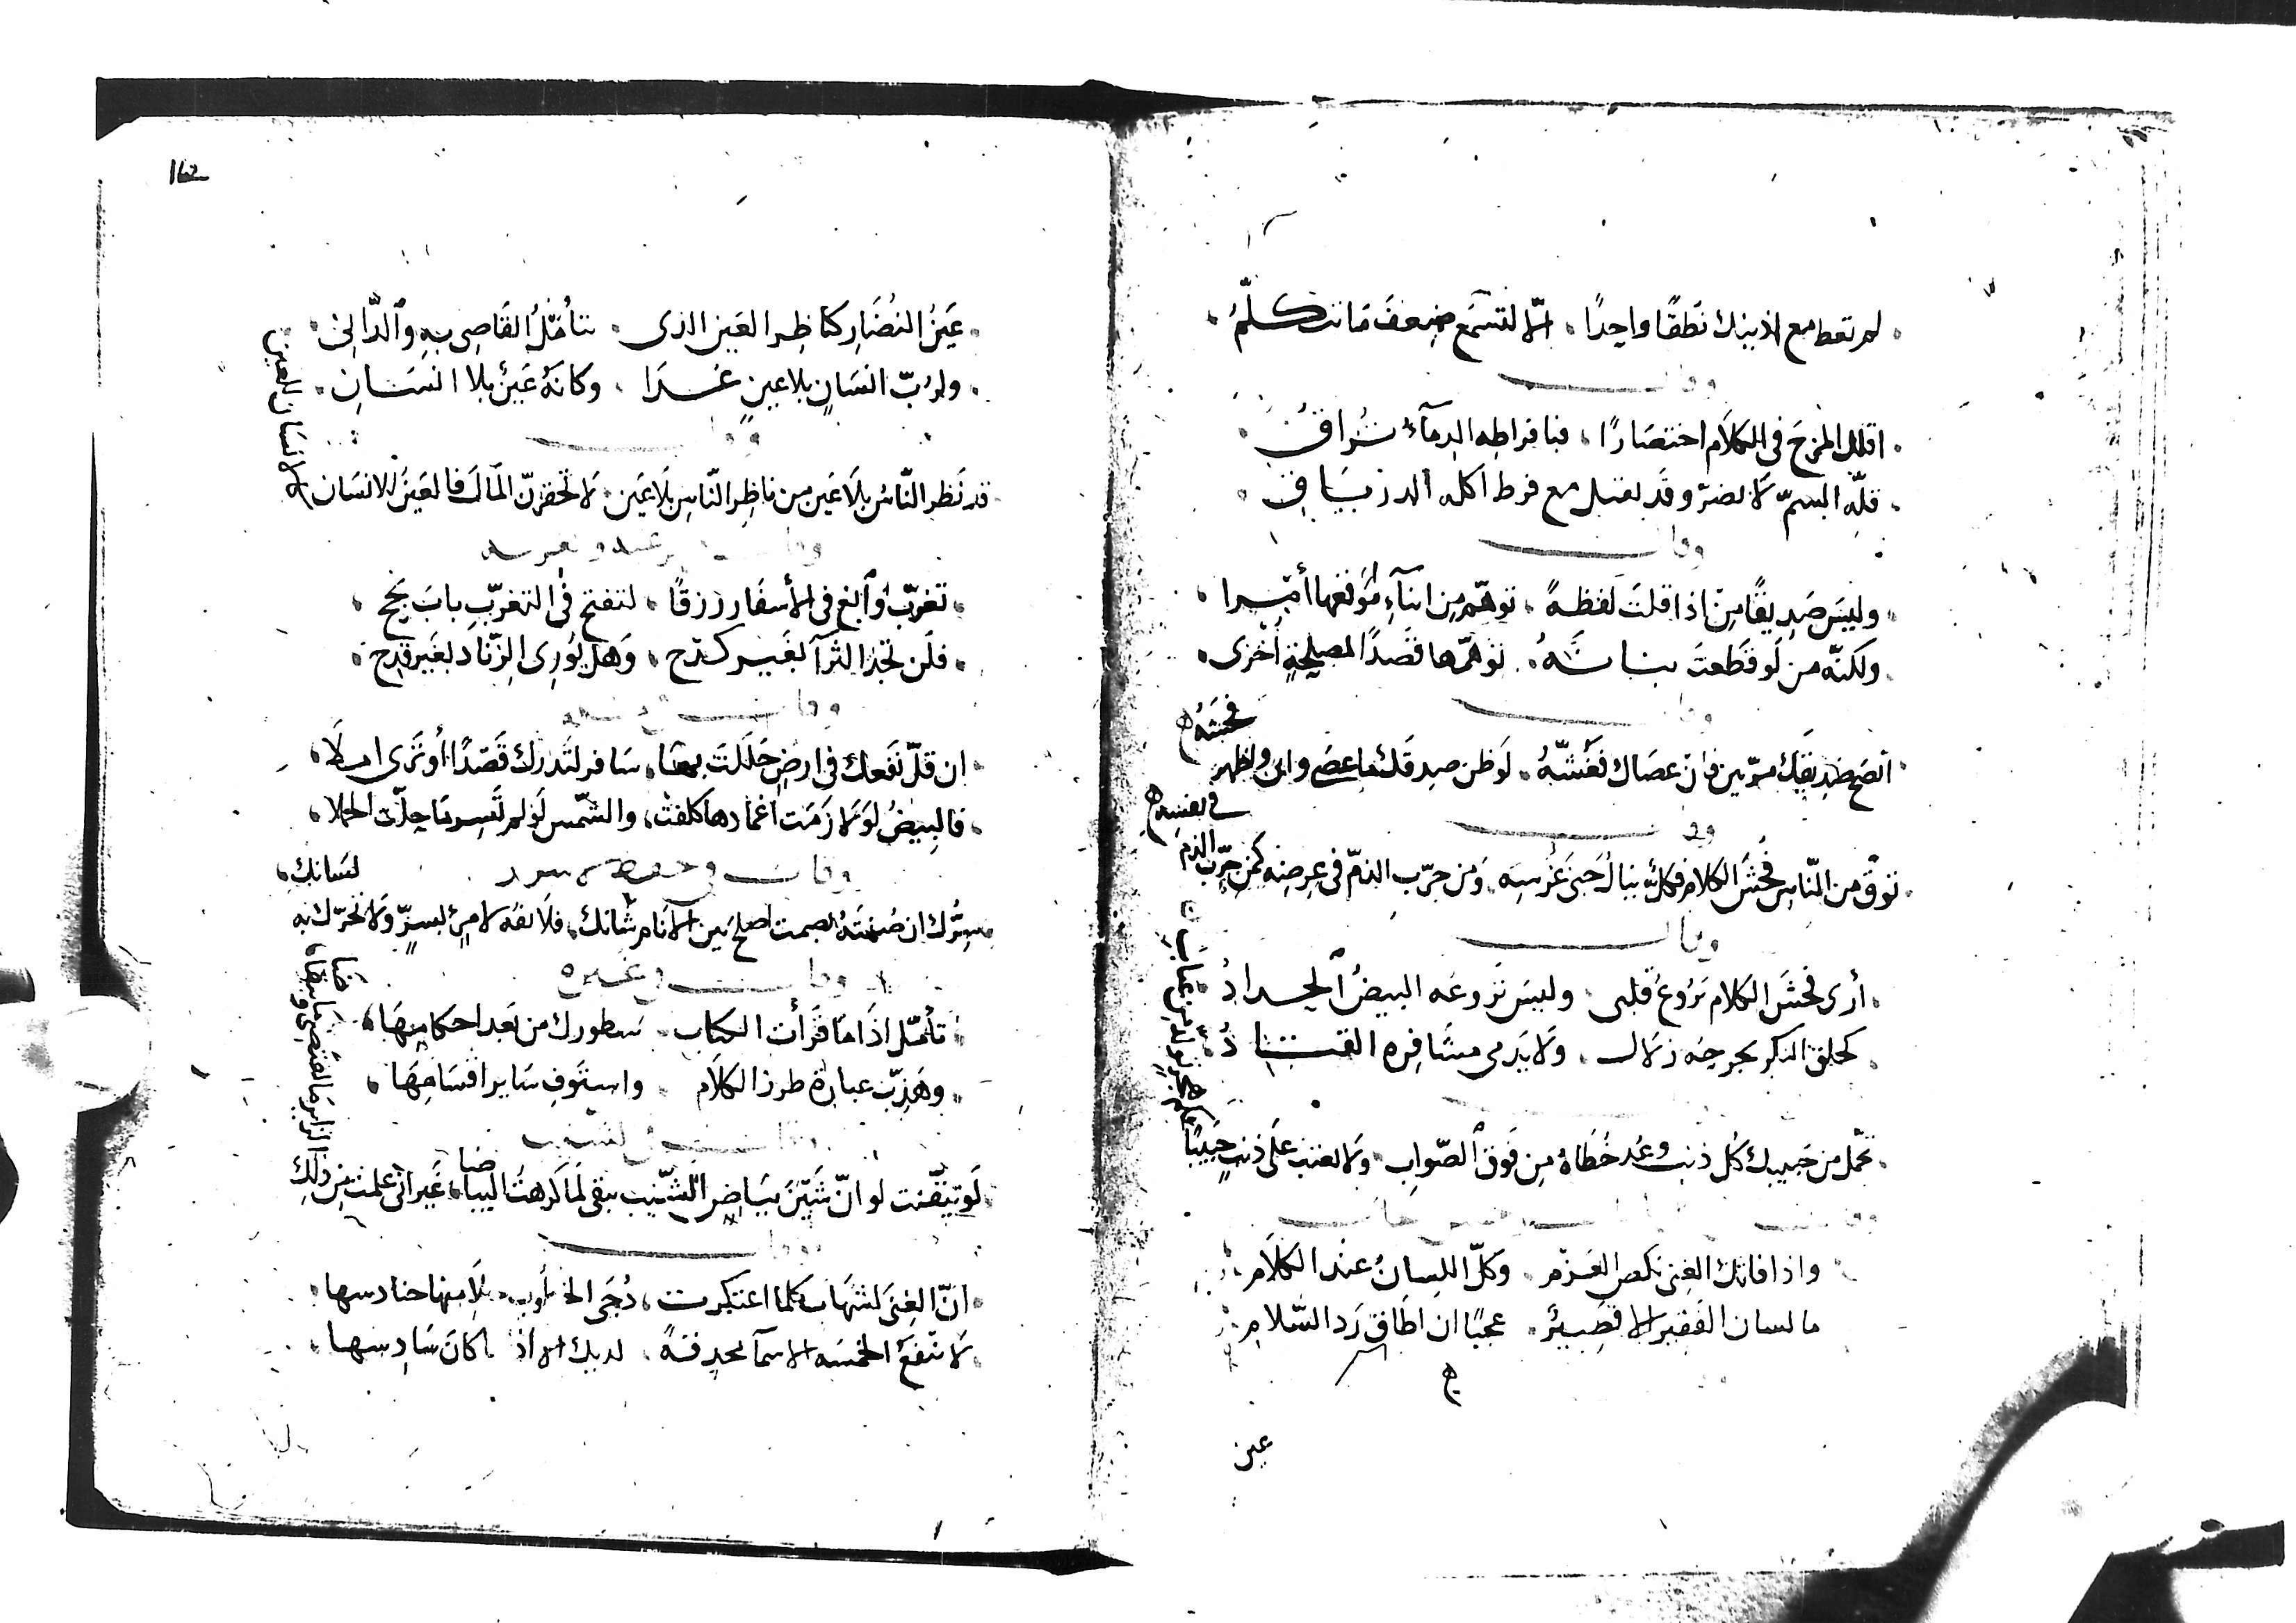 لم تعط مع اذنيك نطقًا واحدًا . الّا لتسمع ضعف ما تتكلّمُ .
وقال
. اقلل المزح فى الكلام احتصارًا . فبافراطه الدمآء تراقُ
. قلّة السمّ لا تضرّ وقد يقتل مع فرط اكله الدرياقُ
وقال
وليسَ صَديقًا من اذا قلتَ لفظةً . توهّم من اثنآء موقعها أمرا .
ولكنّه من لو قطعت بنانهُ . توهّمها قصدًا لمصلحةٍ أخرى .
وقال
. انصح صديقك مرّتين فان عصاك فغشّهُ . لو ظن صدقك ما عصى وابى ولظهر
فحشهُ
وقال
توقّ من النّاس فحش الكلام فكلٌّ ينال جنى غرسه . ومن جرّب الذمّ فى عرضه كمن جرّب الذم
فى نفسه
وقال
. أرى فحش الكلام يروع قلبى . وليس تروعه البيضُ الحدادُ .
كحلق البكر يجرحه زلال . ولا يدمى مشافره القتادُ
. تحمّل من حبيبك كل ذنب وعُد خطاهُ من فوق الصّواب . ولا تعتب على ذنب حبيبًا
فكم هجرٍ تولّد من عتابِ
وقال
واذا فاتك الغِنى نكص العزم . وكلّ اللسانُ عند الكلامِ
ما لسان الفقير الا قصيرٌ . عجبًا ان اطاق رد السّلامِ
عين
. عينُ النُضَار كناظر العين الذى . تتأمّلُ القاصى به والدّانى .
. ولرُبّ انسانٍ بلا عينٍ غدا . وكانّه عينٌ بلا انسان .
وقال
قد نظر النّاسُ بلا عين من ناظر النّاس بلا عين . لا تحقرنّ المال فالعينُ للانسان
كالانسان للعين
وقال
. تغرّبْ وابغ فى الأسفار رزقًا . لتفتح فى التغرّب باب نجح .
. فلن تجد الثرآ بغير كدح . وهل يُورى الزّناد بغير قدح .
وقال
. ان قلّ نفعك فى ارضٍ حللت بها . سافر لتدرك قصدًا أو ترى املا .
. فالبيضُ لو لازمت اغمادها كلفت . والشمس لو لم تسر ما حلّت الحملا .
وقال فى حفظ السر
سِرُّك ان صُنتهُ بصمت اصلح بين الانام شانك . فلا تفه لامرئٍ بسرٍّ ولا تحرّك به
لسانك .
وقال فى غيره
. تأمّل اذا ما قرأت الكتاب . سطورك من بعد احكامها .
. وهذّب عبارة طرز الكلام . واستوفِ ساير اقسامها .
وقال فى الشيب
. لو تيقّنت لو انّ شين بياض الشّيب يبقى لما كرهتُ البياضا . غير انى علمت من ذلك
الزاير ما يقتضى وما يتقاضا
وقال
. انّ الغِنى لشهاب كلما اعتكرت . دُجى الخطوب جلا منها حنادسها .
. لا تنفع الخمسه الاسمآ محدقةً . لديك الا اذا ما كان سادسها .